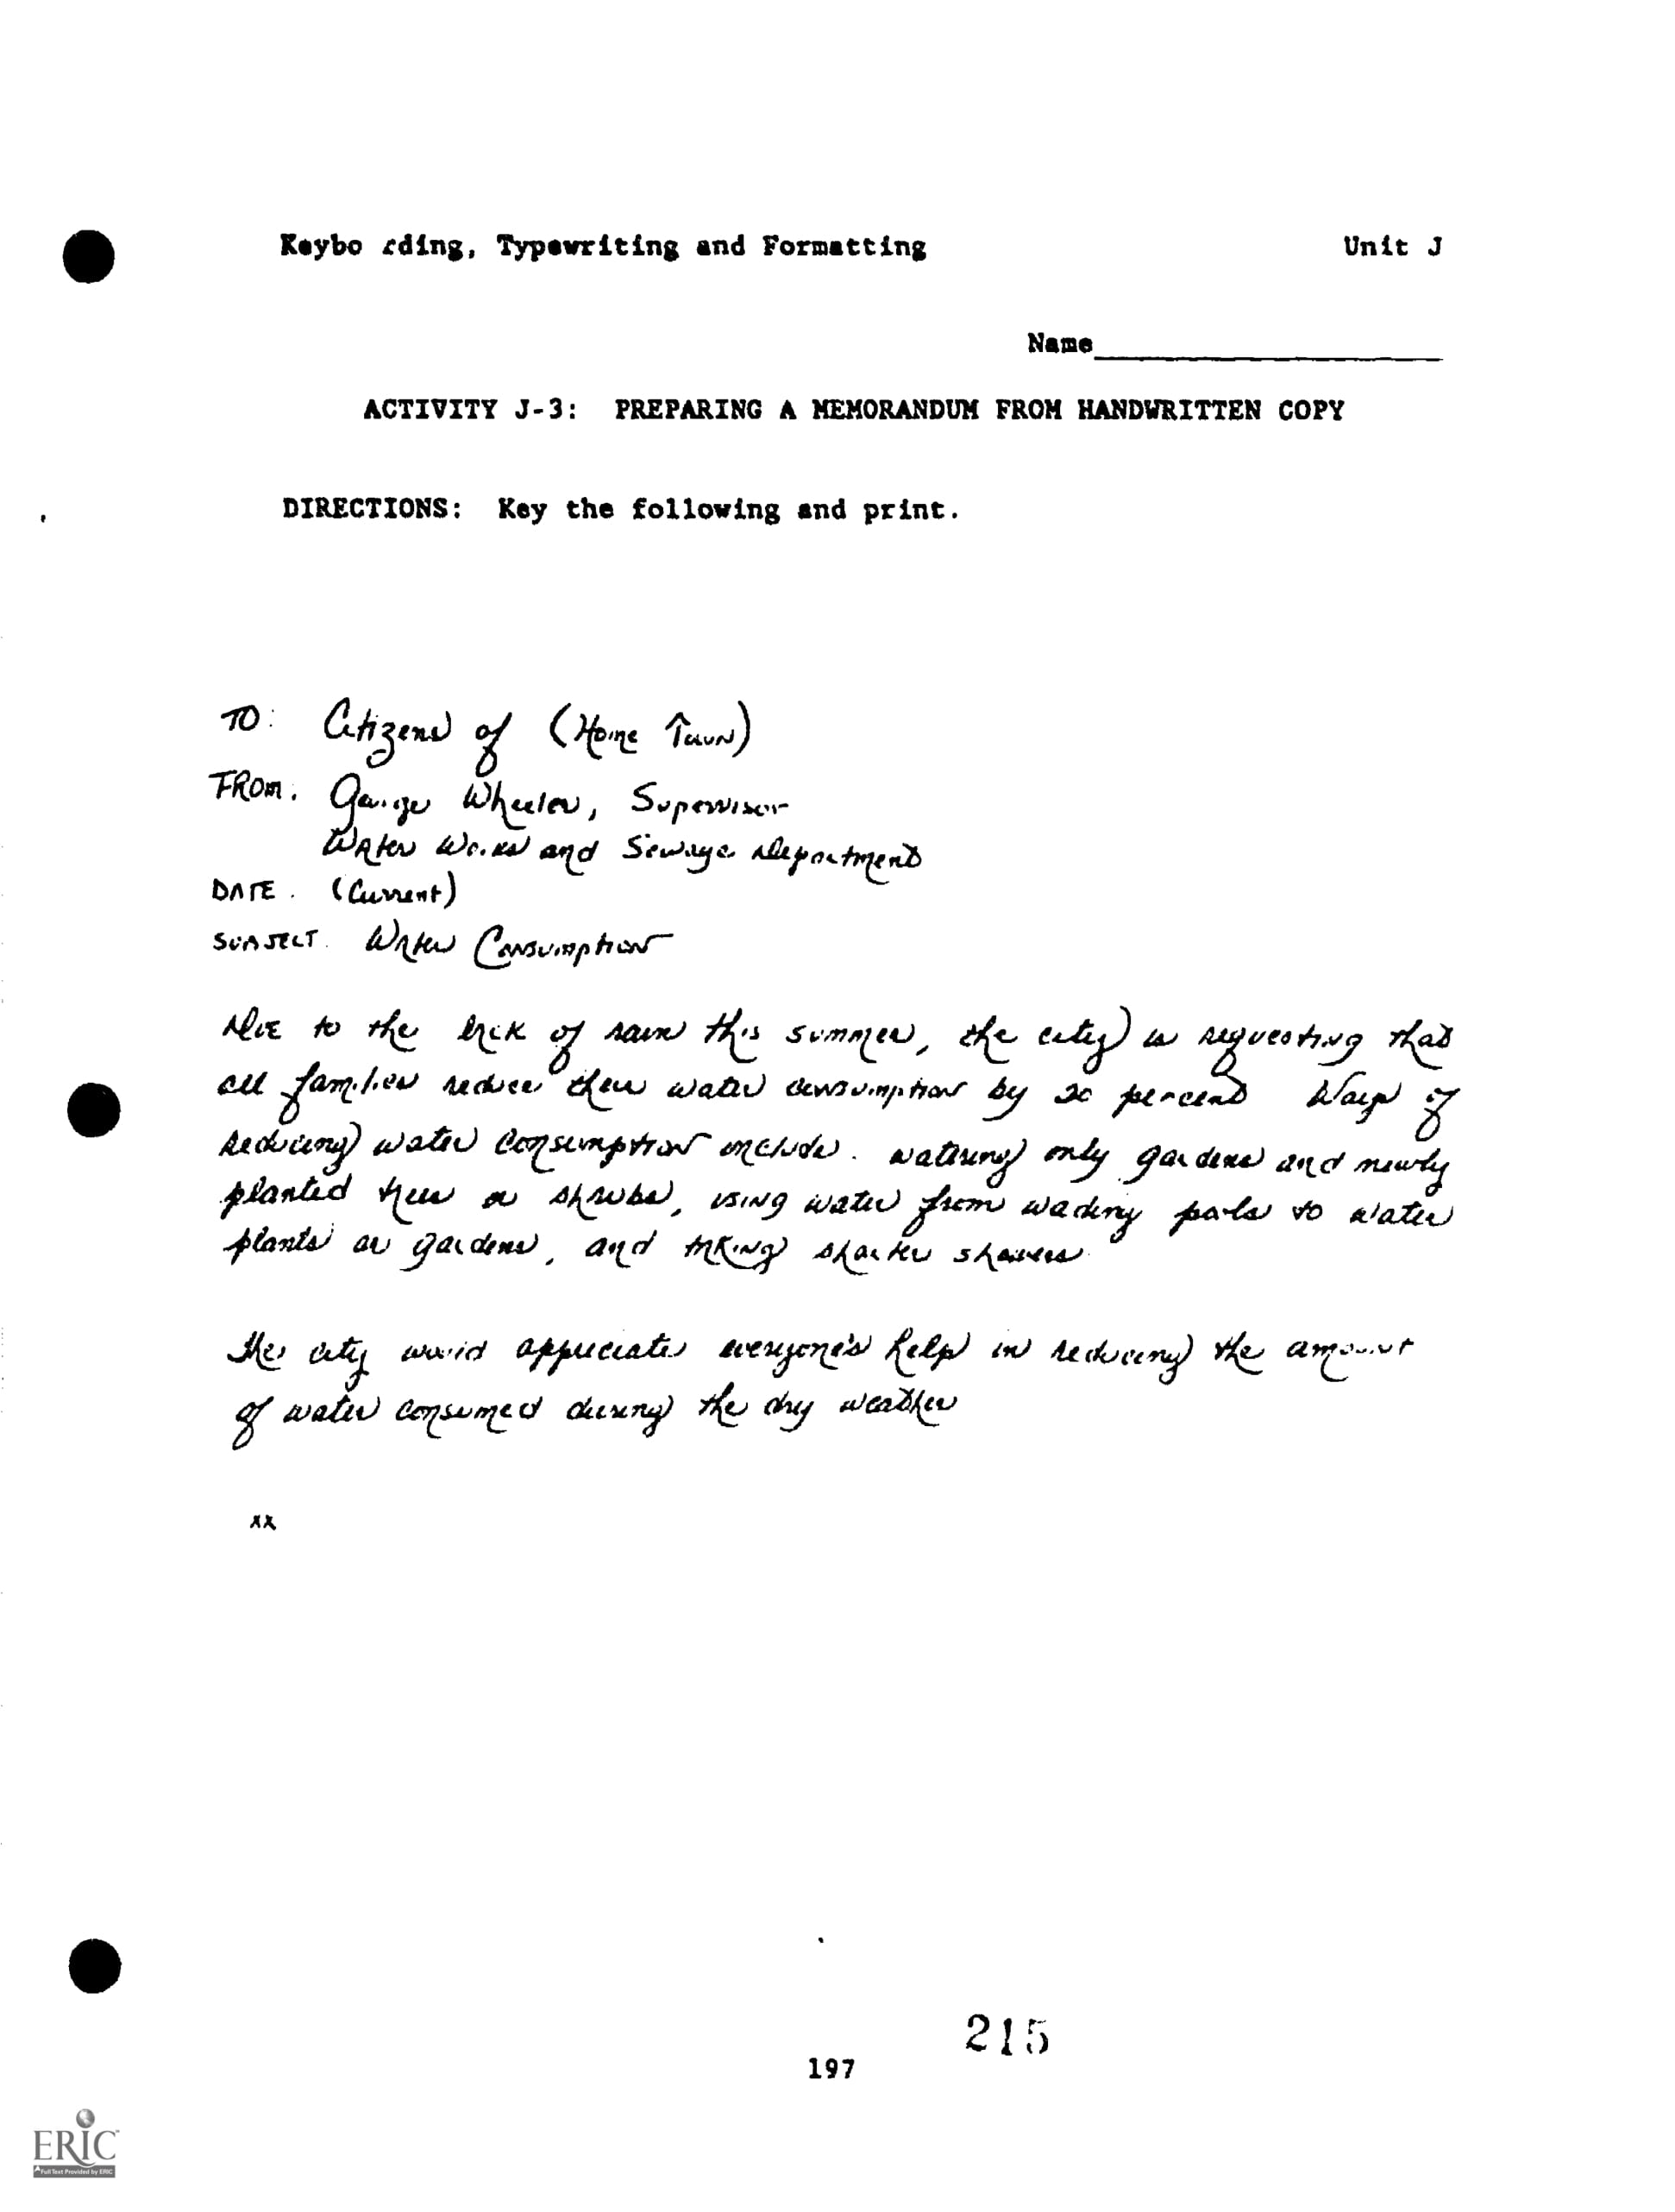 Keybo rding, Typewriting and Formatting Unit J
Name
ACTIVITY J-3: PREPARING A MEMORANDUM FROM HANDWRITTEN COPY
DIRECTIONS: Key the following and print.
TO: Citizens of (Home Town)
FROM: George Wheeler, Supervisor
Water Works and Sewage Department
DATE: (Current)
SUBJECT: Water Consumption
Due to the lack of rain this summer, the city is requesting that
all families reduce their water consumption by 20 percent. Ways of
reducing water consumption include: watering only gardens and newly
planted trees or shrubs, using water from wading pools to water
plants or gardens, and taking shorter showers.
The city would appreciate everyone's help in reducing the amount
of water consumed during the dry weather
xx
215
197
ERIC
Full Text Provided by ERIC